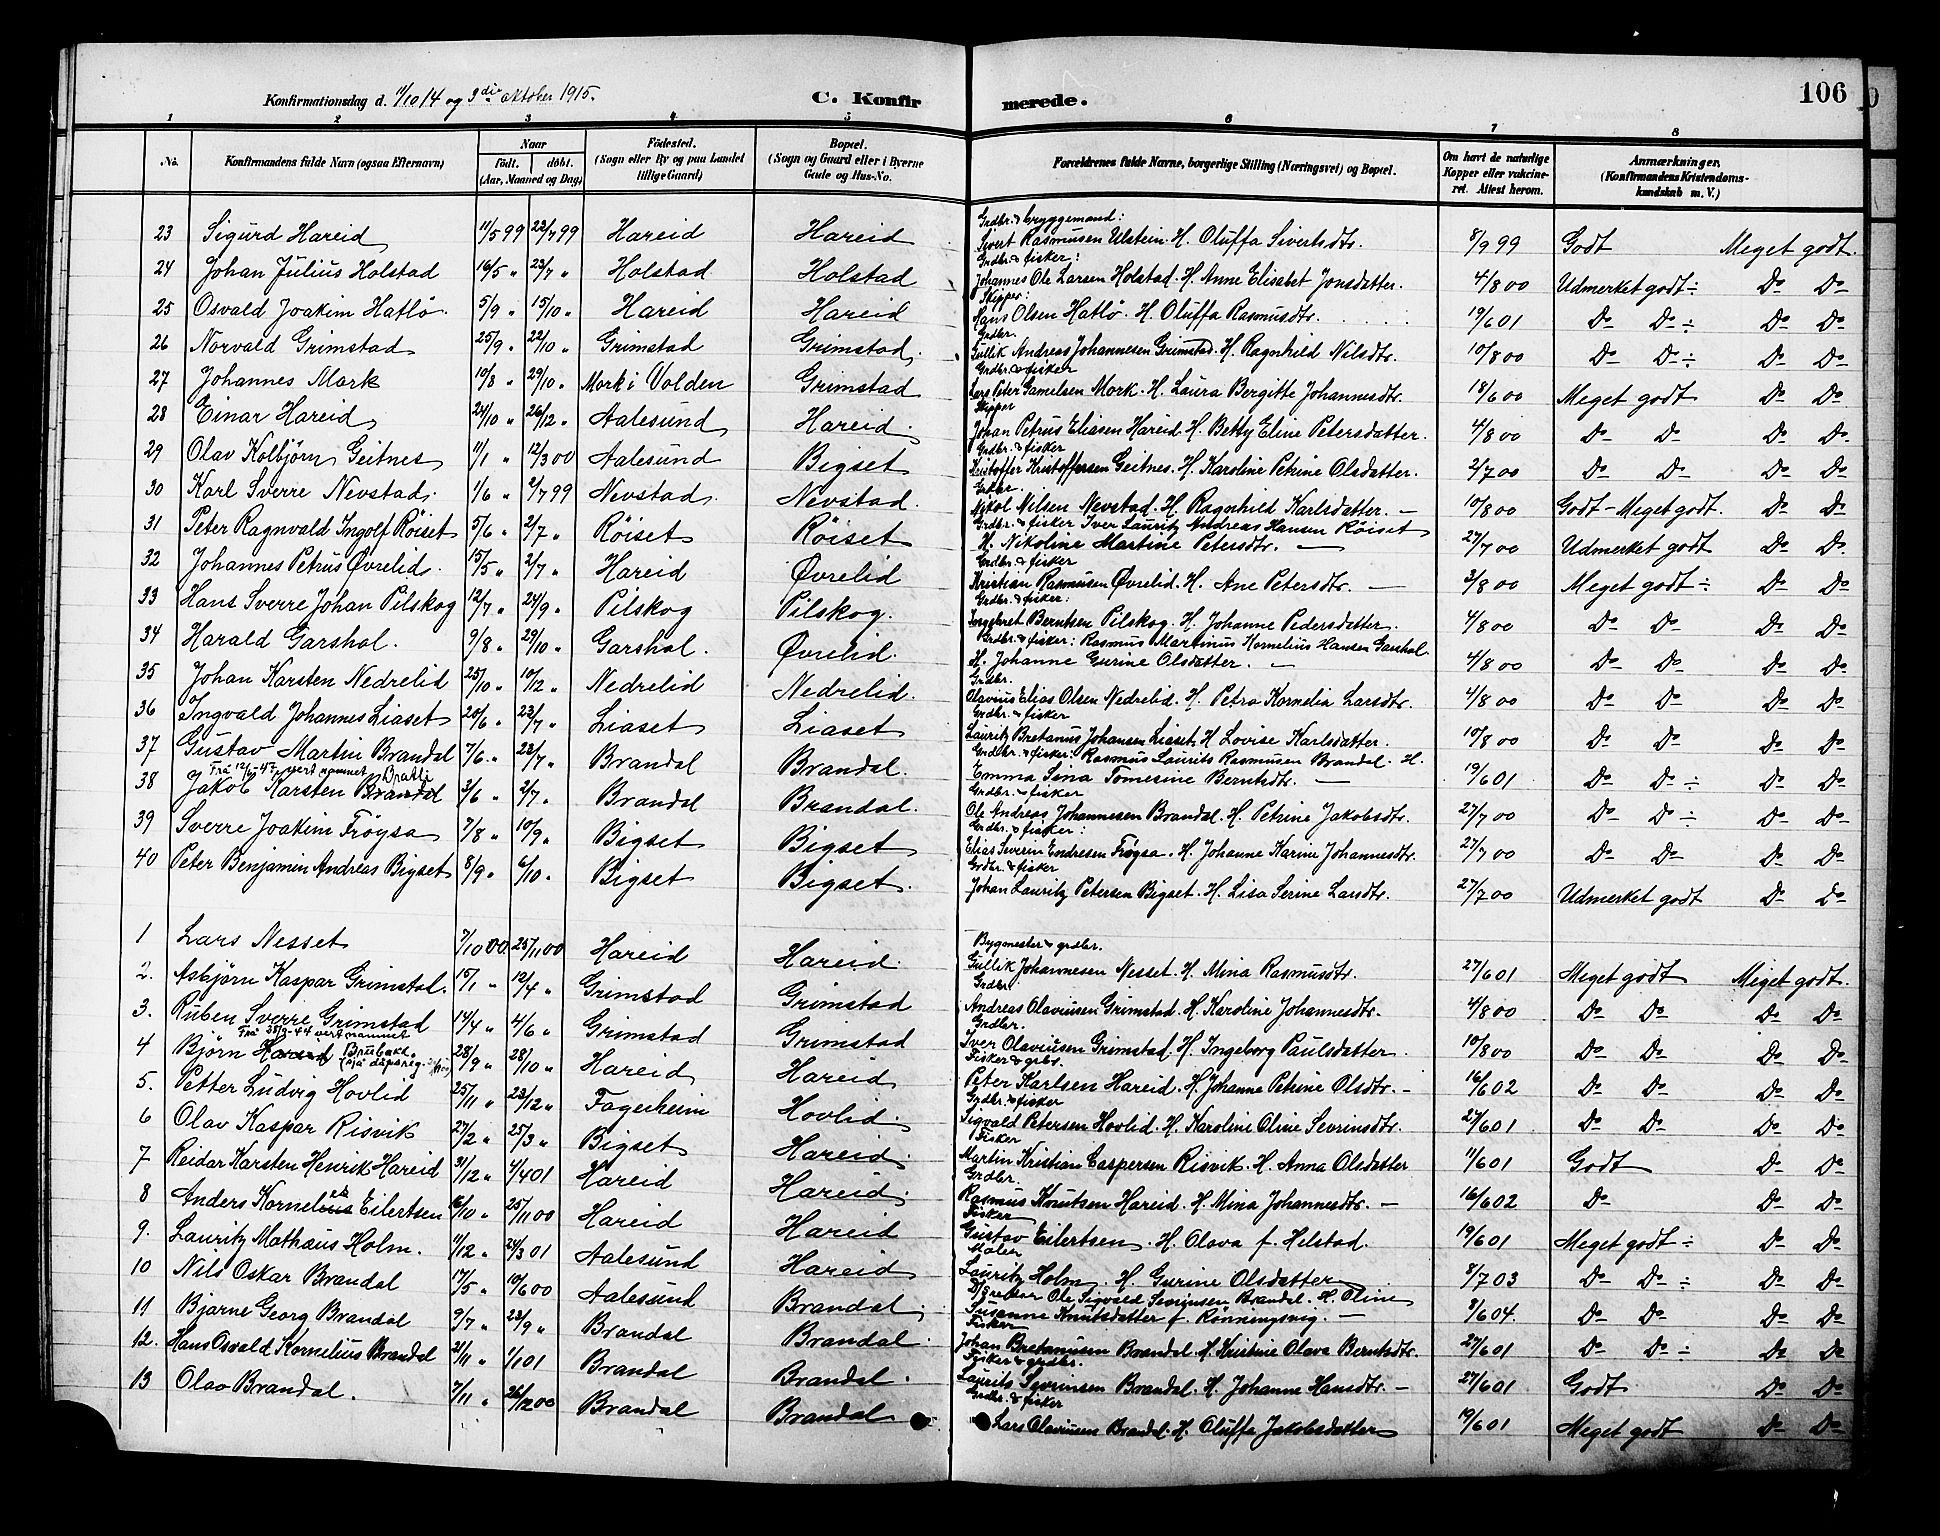 Konfirmationsdag d. 11/10 14 og 3die oktober 1915. C. Konfirmerede. 106
1 2 3 4 5 6 7 8
No. Konfirmandens fulde Navn (ogsaa Efternavn) Naar födt. döbt. (Aar, Maaned og Dag) Födested. (Sogn eller By og paa Landet tillige Gaard) Bopæl. (Sogn og Gaard eller i Byerne Gade og Hus-No. Forældrenes fulde Navne, borgerlige Stilling (Næringsvei) og Bopæl. Om havt de naturlige Kopper eller vakcineret. Attest herom. Anmærkninger, (Konfirmandens Kristendomskundskab m. V.)
23 Sigurd Hareid 11/5 99 22/7 99 Hareid Hareid Grdbr. & bryggemand: Sivert Rasmusen Ulstein. H. Oluffa Sivertsdtr. 8/9 99 Godt Meget godt.
24 Johan Julius Holstad 16/5 " 23/7 " Holstad Holstad Grdbr. & fisker: Johannes Ole Larsen Holstad. H. Anne Elisabet Jonsdatter. 4/8 00 Udmerket godt ÷ Do Do
25 Osvald Joakim Hatlö. 5/9 " 15/10 " Hareid Hareid Skipper: Hans Olsen Hatlö. H. Oluffa Rasmusdtr. 19/6 01 Do Do ÷ Do Do
26 Norvald Grimstad 25/9 " 22/10 " Grimstad Grimstad. Grdbr. Gullik Andreas Johannesen Grimstad. H. Ragnhild Nilsdtr. 10/8 00 Do Do ÷ Do Do
27 Johannes Mork 10/8 " 29/10 " Mork i Volden Grimstad Grdbr. & fisker Lars Peter Gamelsen Mork. H. Laura Bergitte Johannesdtr. 18/6 00 Meget godt Do Do
28 Einar Hareid 24/10 " 26/12 " Aalesund Hareid. Skipper Johan Petrus Eliasen Hareid. H. Betty Eline Petersdatter. 4/8 00 Do Do Do Do
29 Olav Kolbjörn Geitnes 11/1 " 12/3 00 Aalesund Bigset Grdbr. & fisker Kristoffer Kristoffersen Geitnes. H. Karoline Petrine Olsdatter. 2/7 00 Do Do Do Do
30 Karl Sverre Nevstad. 1/6 " 2/7 99 Nevstad. Nevstad. Grdbr. Nikol Nilsen Nevstad. H. Ragnhild Karlsdatter. — 10/8 00 Godt - Meget godt. Do Do
31 Peter Ragnvald Ingolf Röiset 5/6 " 2/7 " Röiset Röiset Grdbr. & fisker Iver Lauritz Andreas Hansen Röiset H. Nikoline Martine Petersdtr. — 27/7 00 Udmerket godt Do Do
32 Johannes Petrus Øvrelid. 15/5 " 2/7 " Hareid Øvrelid Grdbr. & fisker Kristian Rasmusen Øvrelid. H. Ane Petersdtr. — 3/8 00 Meget godt ÷ Do Do
33 Hans Sverre Johan Pilskog 12/7 " 24/9 " Pilskog Pilskog. Grdbr. & fisker: Ingebret Berntsen Pilskog. H. Johanne Pedersdatter. 4/8 00 Do Do Do Do
34 Harald Garshol. 9/8 " 29/10 " Garshol. Øvrelid. Grdbr. & fisker: Rasmus Martinus Kornelius Hansen Garshol H. Johanne Gurine Olsdatter. — 4/8 00 Do Do Do Do
35 Johan Karsten Nedrelid 25/10 " 10/12 " Nedrelid Nedrelid. Grdbr. Olavius Elias Olsen Nedrelid. H. Petra Kornelia Larsdtr. 4/8 00 Do Do Do Do
36 Ingvald Johannes Liaset 20/6 " 23/7 " Liaset Liaset Grdbr. & fisker Lauritz Bretanus Johansen Liaset. H. Lovise Karlsdatter. 10/8 00 Do Do Do Do
37 Gustav Martin Brandal 7/6 " 23/7 " Brandal Brandal. Grdbr. & fisker. Rasmus Laurits Rasmusen Brandal. H. Emma Sina Tomesine Berntsdtr. — 19/6 01 Do Do ÷ Do Do
38 Fra 12/6-47 vert namnet Jakob Karsten Brandal 3/6 " 2/7 " Brandal Brandal. Grdbr. & fisker Ole Andreas Johannesen Brandal. H. Petrine Jakobsdtr. 27/7 00 Do Do ÷ Do Do
39 Sverre Joakim Fröysa 7/8 " 10/9 " Bigset Bigset Grdbr. & fisker: Elias Severin Endresen Fröysa. H. Johanne Karine Johannesdtr. 27/7 00 Do Do Do Do
40 Peter Benjamin Andreas Bigset 8/9 " 6/10 " Bigset Bigset. Grdbr. & fisker Johan Lauritz Petersen Bigset. H. Lisa Serine Larsdtr. 27/7 00 Udmerket godt Do Do
1 Lars Nesset 7/10 00 25/11 00 Hareid Hareid. Bygmester & grdbr. Gullik Johannesen Nesset. H. Mina Rasmusdtr. 27/6 01 Meget godt Meget godt.
2. Asbjörn Kaspar Grimstad. 15/1 " 12/4 " Grimstad Grimstad Grdbr. Andreas Olaviusen Grimstad. H. Karoline Johannesdtr. 4/8 00 Do Do Do Do
3. Ruben Sverre Grimstad 14/4 " 4/6 " Grimstad Grimstad Grdbr. Iver Olaviusen Grimstad. H. Ingeborg Paulsdatter. 10/8 00 Do Do Do Do
4 Fra 28/3-44 vert namnet Björn Hareid Brubakk. 28/9 " 28/10 " Hareid Hareid Fisker & grbr. Peter Karlsen Hareid. H. Johanne Petrine Olsdtr. - 16/6 02 Do Do Do Do
5. Petter Ludvig Hovlid 25/11 " 23/12 " Fagerheim Hovlid. Grdbr. & fisker Sigvald Petersen Hovlid. H. Karoline Oline Sevrinsdtr. 27/6 01 Do Do Do Do
6 Olav Kaspar Risvik 27/2 " 25/3 " Bigset Hareid. Fisker Martin Kristian Caspersen Risvik. H. Anna Olsdatter 11/6 01 Godt Do Do
7 Reidar Karsten Henrik Hareid 31/12 " 4/4 01 Hareid Hareid. Grdbr. Rasmus Knutsen Hareid. H. Mina Johannesdtr. — 16/6 02 Do Do Do
8 Anders Kornelius Eilertsen 16/10 " 25/11 00 Hareid Hareid Fisker Gustav Eilertsen. H. Olava f. Helstad. 19/6 01 Meget godt ÷ Do Do
9. Lauritz Mathæus Holm. 11/12 " 24/3 01 Aalesund Hareid Maler Lauritz Holm. H. Gurine Olsdatter 8/7 03 Do Do ÷ Do Do
10 Nils Oskar Brandal 17/5 " 10/6 00 Aalesund Brandal. Ole Sigvald Sevrinsen Brandal. H. Oline Susanne Knutsdatter f. Rönningsvig. — 8/6 04. Do Do Do Do
11 Bjarne Georg Brandal 9/7 " 23/9 " Brandal Brandal. Fisker Johan Bretanusen Brandal. H. Kristine Olava Berntsdtr. 27/6 01 Do Do ÷ Do Do
12. Hans Osvald Kornelius Brandal 21/11 " 1/1 01 Brandal Brandal. Fisker & grdbr. Laurits Sevrinsen Brandal. H. Johanne Hansdtr. — 27/6 01 Godt Do Do
13 Olav Brandal. 7/11 " 26/12 00 Brandal Brandal Grdbr. & fisker Lars Olaviusen Brandal. H. Oluffa Jakobsdatter 19/6 01 Meget godt Do Do